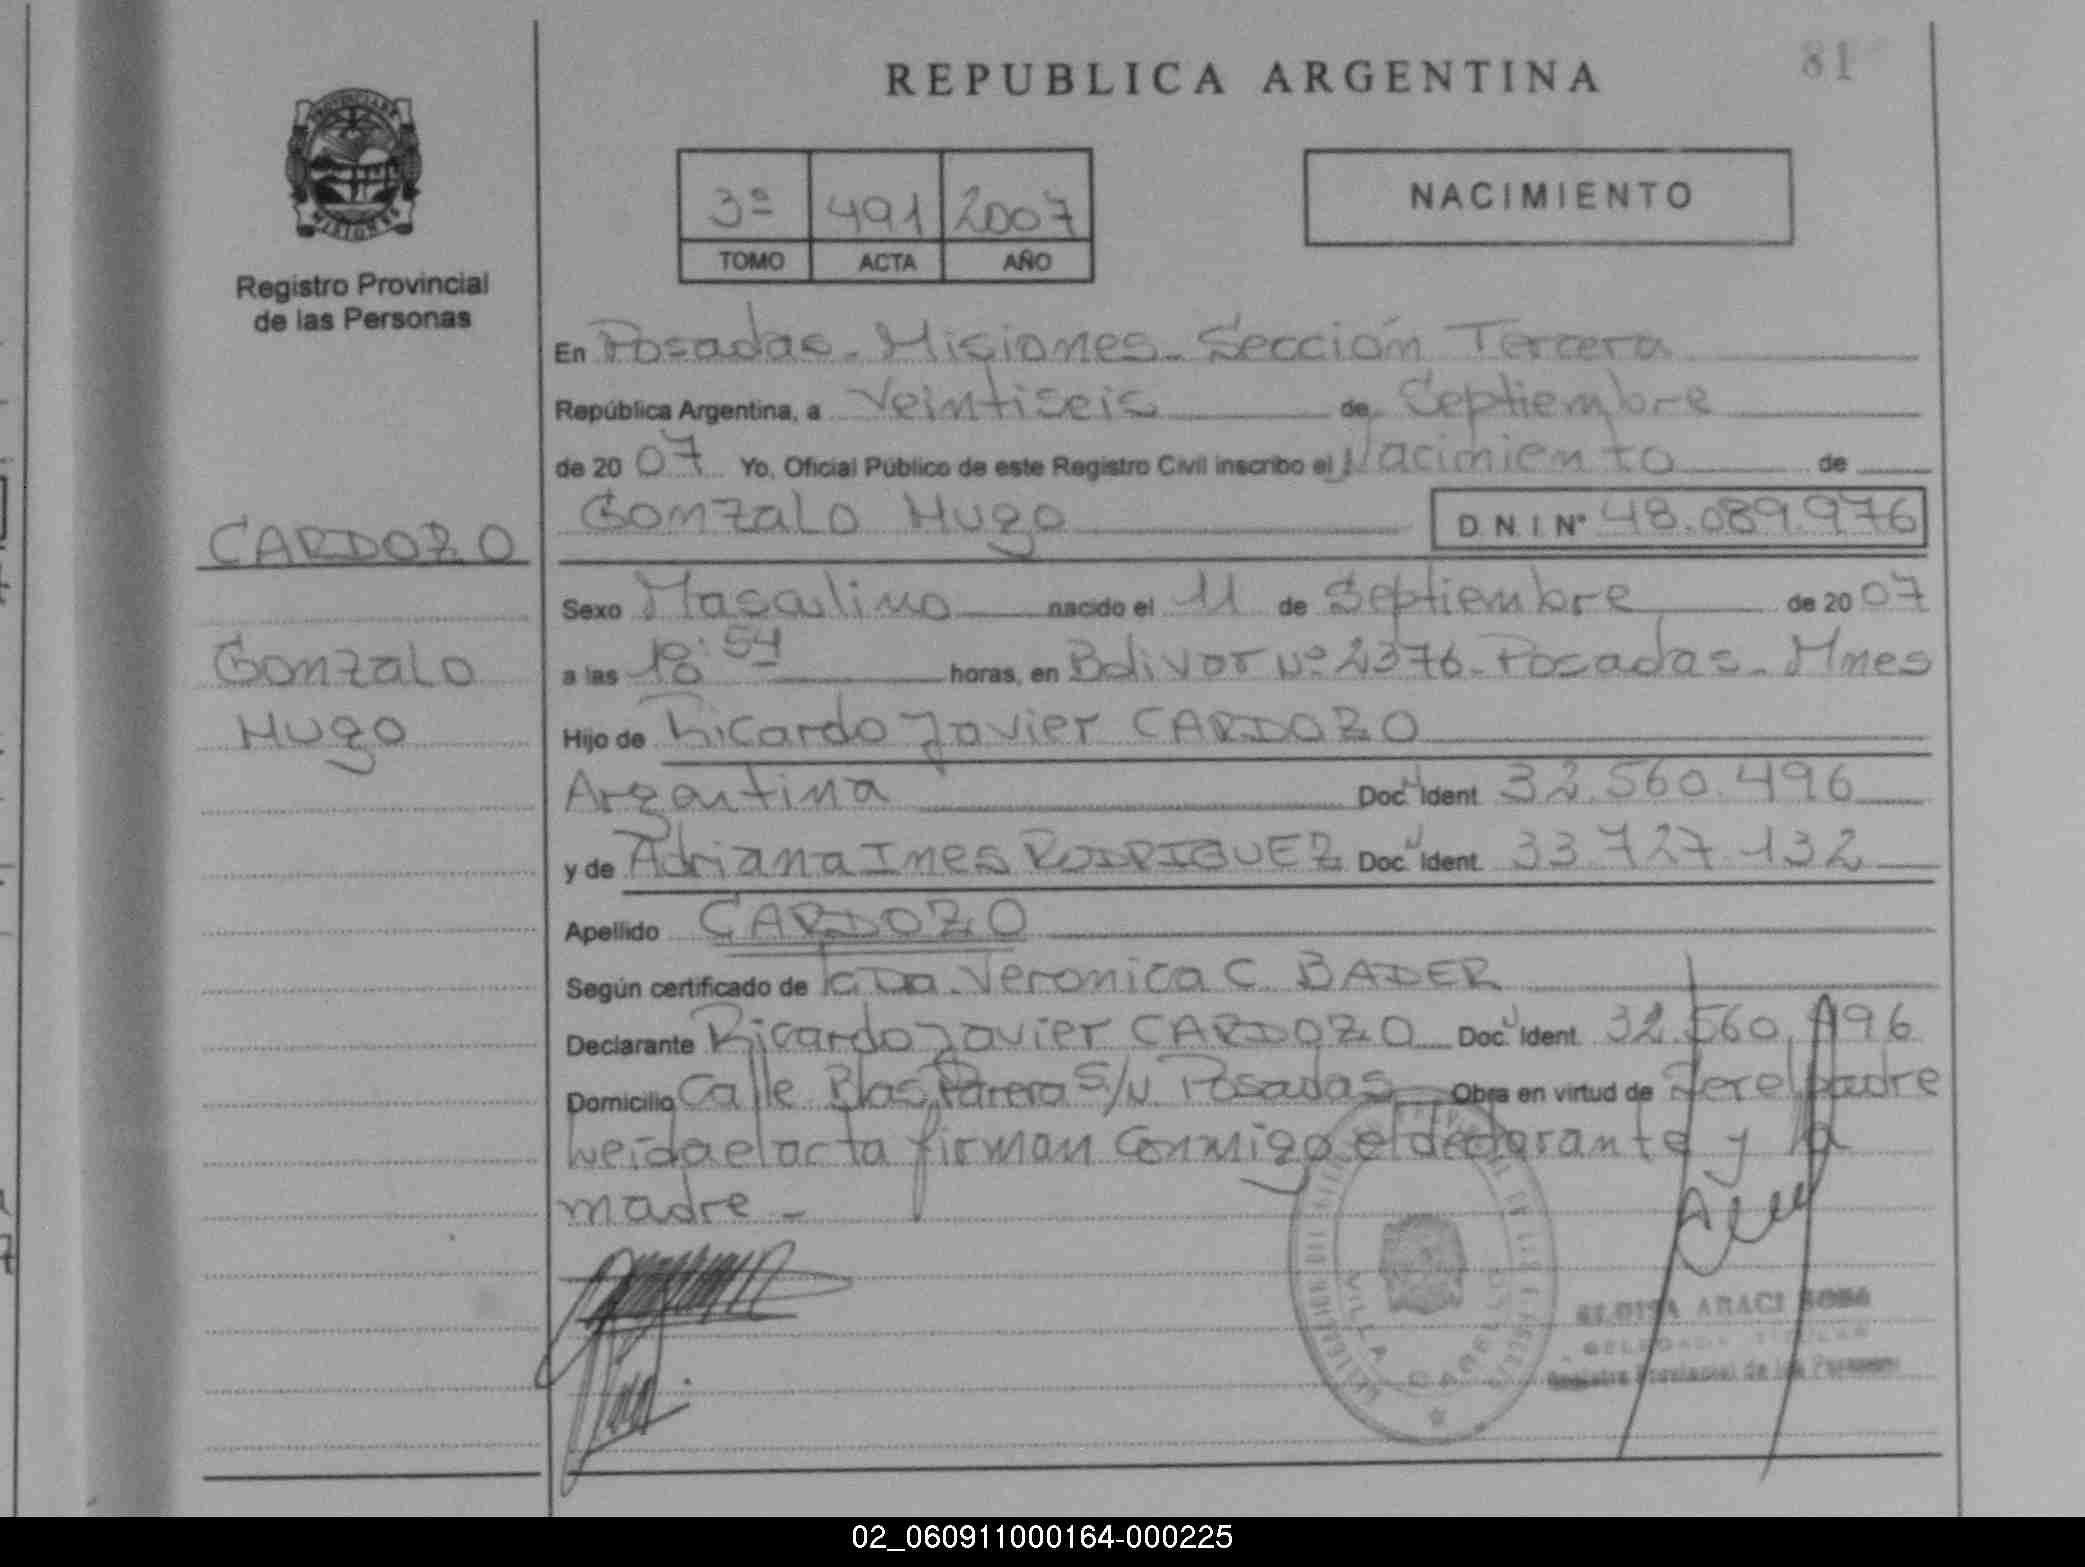 REPUBLICA ARGENTINA
81
PROVINCIA DE
MISIONES
Registro Provincial
de las Personas
3ª 491 2007
TOMO ACTA AÑO
NACIMIENTO
En Posadas - Misiones - Sección Tercera
República Argentina, a Veintiseis de Septiembre
de 20 07 Yo, Oficial Público de este Registro Civil inscribo el Nacimiento de
CARDOZO
Gonzalo Hugo D.N.I Nº 48.089.976
Sexo Masculino nacido el 11 de Septiembre de 20 07
Gonzalo
a las 18:54 horas, en Bolivar Nº 2376 - Posadas - Mnes
Hugo
Hijo de Ricardo Javier CARDOZO
Argentina Doc. Ident. 32.560.496
y de Adriana Ines RODRIGUEZ Doc. Ident. 33.727.132
Apellido CARDOZO
Según certificado de Veronica C. BADER
Declarante Ricardo Javier CARDOZO Doc. Ident. 32.560.496
Domicilio Calle Blas Parera S/N Posadas Obra en virtud de Ser el padre
Leída el acta firman conmigo el declarante y la
madre -
VILLA CABELLO
ELOISA ARACI SOSA
DELEGADA TITULAR
Registro Provincial de las Personas
02_060911000164-000225